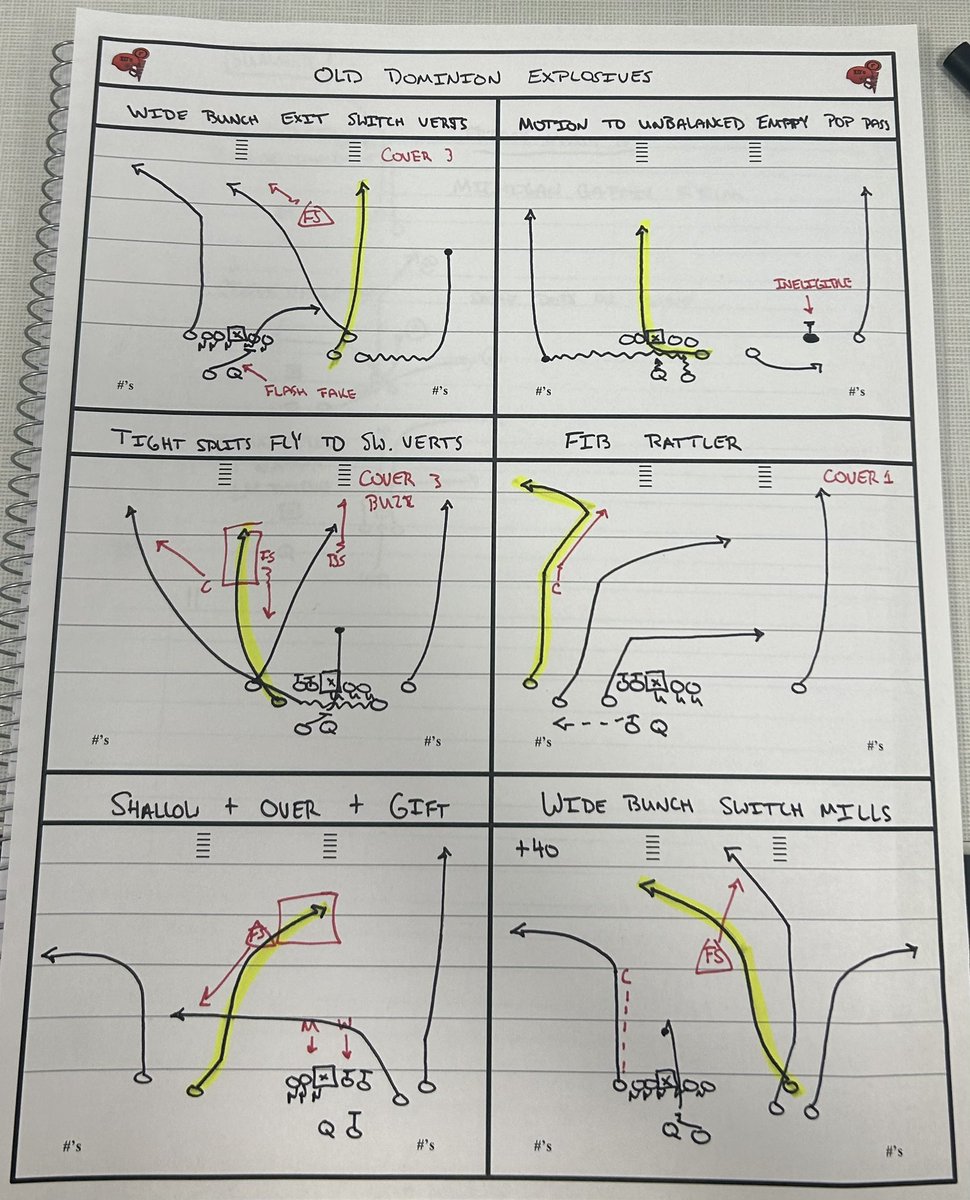 OLD DOMINION EXPLOSIVES
WIDE BUNCH EXIT SWITCH VERTS
COVER 3
FS
X
Q
FLASH FAKE
#'s
#'s
MOTION TO UNBALANCED EMPTY POP PASS
INELIGIBLE
X
Q
#'s
#'s
TIGHT SPLITS FLY TO SW. VERTS
COVER 3
BUZZ
C
FS
BS
X
Q
#'s
#'s
FIB RATTLER
COVER 1
C
X
Q
#'s
#'s
SHALLOW + OVER + GIFT
FS
M W
X
Q
#'s
#'s
WIDE BUNCH SWITCH MILLS
+40
FS
C
X
Q
#'s
#'s